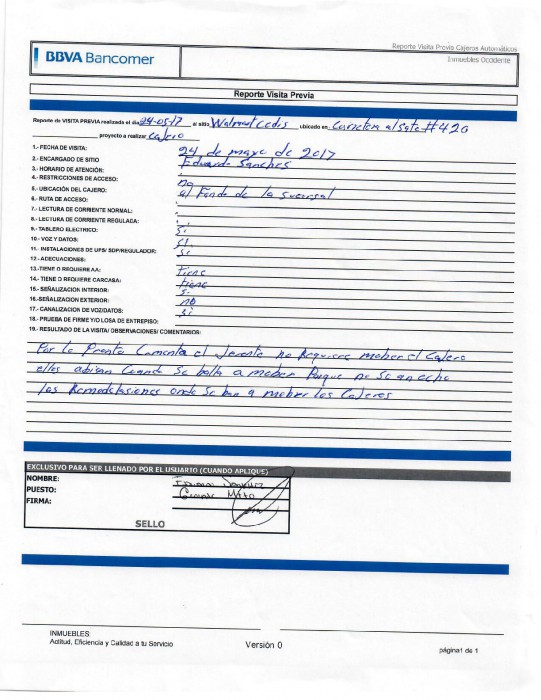 Reporte Visita Previa Cajeros Automáticos
BBVA Bancomer
Inmuebles Occidente
Reporte Visita Previa
Reporte de VISITA PREVIA realizada el dia 24-05-17 al sitio Walmart cedis ubicado en Carretera al Salto #420
proyecto a realizar Cajero
1.- FECHA DE VISITA: 24 de mayo de 2017
2.- ENCARGADO DE SITIO Eduardo Sanches
3.- HORARIO DE ATENCIÓN:
4.- RESTRICCIONES DE ACCESO: no
5.- UBICACIÓN DEL CAJERO: al Fondo de la Sucursal
6.- RUTA DE ACCESO:
7.- LECTURA DE CORRIENTE NORMAL:
8.- LECTURA DE CORRIENTE REGULADA:
9.- TABLERO ELECTRICO: Si
10.- VOZ Y DATOS: Si
11.- INSTALACIONES DE UPS/ SDP/REGULADOR: Si
12.- ADECUACIONES:
13.-TIENE O REQUIERE AA: Tiene
14.- TIENE O REQUIERE CARCASA: tiene
15.- SEÑALIZACION INTERIOR: Si
16.-SEÑALIZACION EXTERIOR: no
17.- CANALIZACION DE VOZ/DATOS: Si
18.- PRUEBA DE FIRME Y/O LOSA DE ENTREPISO:
19.- RESULTADO DE LA VISITA/ OBSERVACIONES/ COMENTARIOS:
Por lo Pronto Comenta el Jerente no Requiere mober el Cajero
ellos abisan Cuando Se balla a mober Porque no Se an echo
las Remodelasiones onde Se ban a mober los Cajeros
EXCLUSIVO PARA SER LLENADO POR EL USUARIO (CUANDO APLIQUE)
NOMBRE:
PUESTO: Mtto
FIRMA:
SELLO
INMUEBLES
Actitud, Eficiencia y Calidad a tu Servicio
Versión 0
página1 de 1